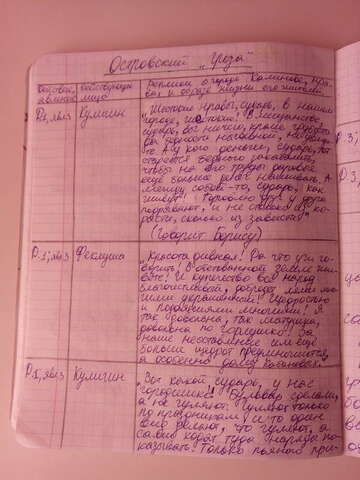 Островский „Гроза"
Действие, действующее Реплики о городе Калинове, нра-
явление лицо вах и образе жизни его жителей
Д.1, явл.3 Кулигин „Жестокие нравы, сударь, в нашем
городе, жестокие! В мещанстве,
сударь, вы ничего, кроме грубости
да бедности нагольной, не увиди-
те. А у кого деньги, сударь, тот
старается бедного закабалить,
чтобы на его труды даровые
еще больше денег наживать. А
между собой-то, сударь, как
живут! Торговлю друг у друга
подрывают, и не столько из ко-
рысти, сколько из зависти."
(Говорит Борису)
Д.1, явл.3 Феклуша „Красота дивная! Да что уж го-
ворить! В обетованной земле жи-
вете! И купечество все народ
благочестивый, добродетелями мно-
гими украшенный! Щедростью
и подаяниями многими! Я
так довольна, так, матушка,
довольна, по горлышко! За
наше неоставление им еще
больше щедрот приумножится,
а особенно дому Кабановых."
Д.3, явл.3 Кулигин „Вот какой, сударь, у нас
городишко! Бульвар сделали,
а не гуляют. Гуляют только
по праздникам, и то один
вид делают, что гуляют, а
сами ходят туда наряды по-
казывать. Только пьяного при-